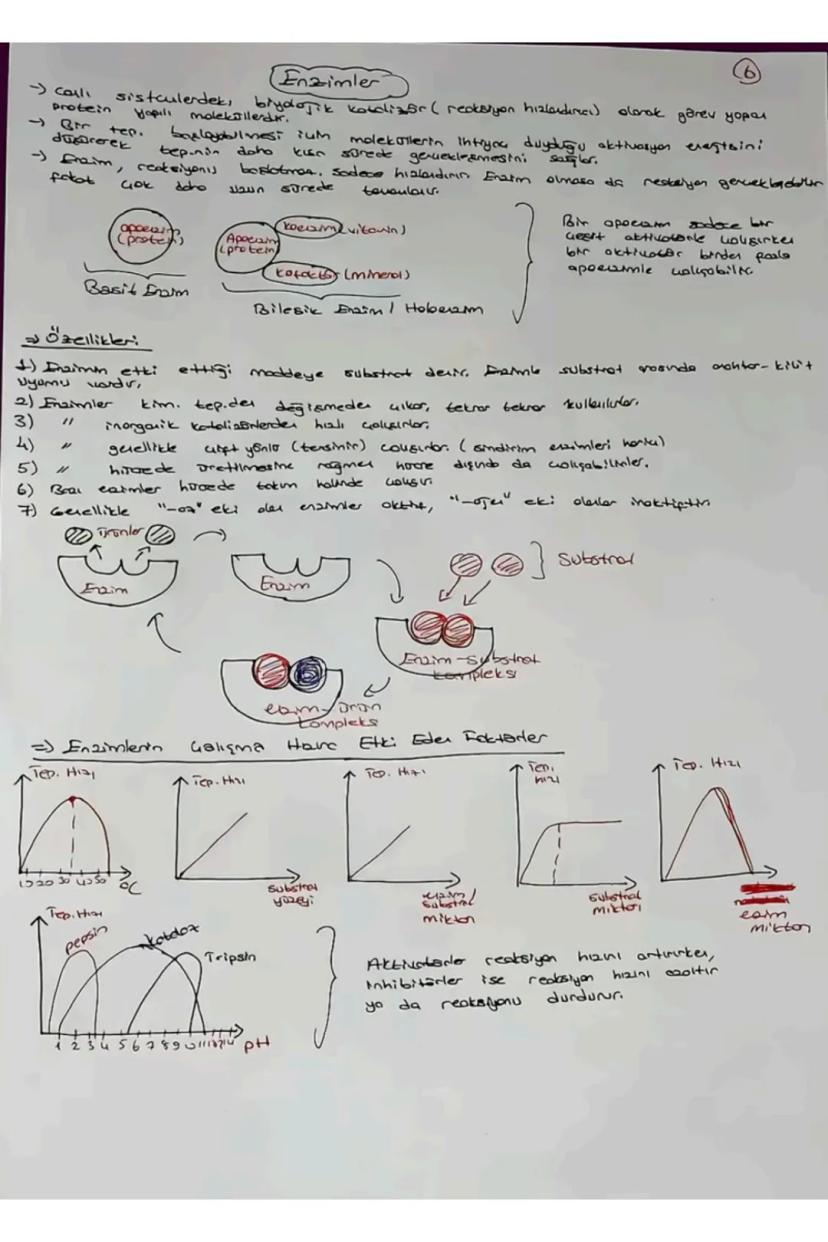 Enzimler
6
-> Canlı sistemlerdeki biyolojik katalizör (reaksiyon hızlandırıcı) olarak görev yapan
protein yapılı moleküllerdir.
-> Bir tep. başlayabilmesi için moleküllerin ihtiyaç duyduğu aktivasyon enerjisini
düşürerek tep.nin daha kısa sürede gerçekleşmesini sağlar.
-> Enzim, reaksiyonu başlatmaz, sadece hızlandırır. Enzim olmasa da reaksiyon gerçekleşebilir
fakat çok daha uzun sürede tamamlanır.
apoenzim (protein)
Basit Enzim
Apoenzim (protein)
koenzim (vitamin)
kofaktör (mineral)
Bileşik Enzim / Holoenzim
Bir apoenzim sadece bir
çeşit aktivatörle çalışırken
bir aktivatör birden fazla
apoenzimle çalışabilir.
=> Özellikleri
1) Enzimin etki ettiği maddeye substrat denir. Enzimle substrat arasında anahtar-kilit
uyumu vardır.
2) Enzimler kim. tep.den değişmeden çıkar, tekrar tekrar kullanılırlar.
3) " inorganik katalizörlerden hızlı çalışırlar.
4) " genellikle çift yönlü (tersinir) çalışırlar. (sindirim enzimleri hariç)
5) " hücrede üretilmesine rağmen hücre dışında da çalışabilirler.
6) Bazı enzimler hücrede takım halinde çalışır.
7) Genellikle "-az" eki alan enzimler aktif, "-ojen" eki alanlar inaktiftir.
ürünler
Enzim
Enzim
Substrat
Enzim-Substrat
kompleksi
enzim-ürün
kompleks
=> Enzimlerin Çalışma Hızına Etki Eden Faktörler
Tep. Hızı
10 20 30 40 50 °C
Tep. Hızı
Substrat
yüzeyi
Tep. Hızı
enzim/
substrat
miktarı
Tep.
Hızı
Substrat
miktarı
Tep. Hızı
enzim
miktarı
Tep. Hızı
pepsin
katalaz
Tripsin
1 2 3 4 5 6 7 8 9 10 11 12 13 14 pH
Aktivatörler reaksiyon hızını artırırken,
inhibitörler ise reaksiyon hızını azaltır
ya da reaksiyonu durdurur.